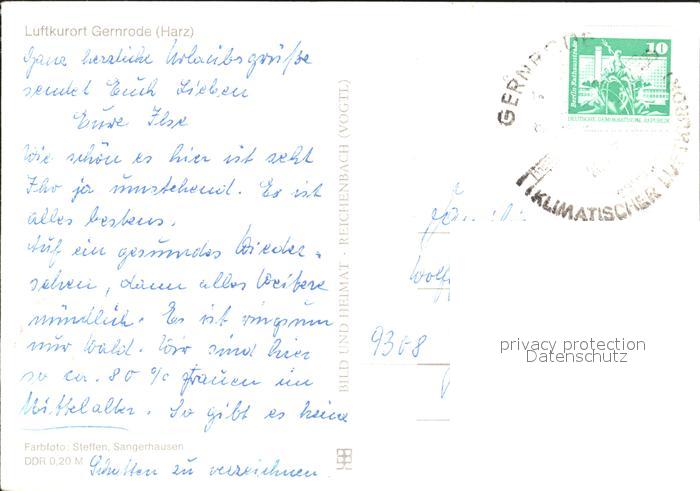 Luftkurort Gernrode (Harz)
Ganz herzliche Urlaubsgrüße
sendet Euch Lieben
Eure Ilse
Wie schön es hier ist seht
Ihr ja umstehend. Es ist
alles bestens.
Auf ein gesundes Wieder-
sehen, dann alles Weitere
mündlich. Es ist ringsum
nur Wald. Wir sind hier
so ca. 80 % Frauen im
Mittelalter. So gibt es keine
Schatten zu verzeichnen
Farbfoto: Steffen, Sangerhausen
DDR 0,20 M
BILD UND HEIMAT · REICHENBACH (VOGTL)
10
Berlin, Rathausstraße
DEUTSCHE DEMOKRATISCHE REPUBLIK
GERNRODE
KLIMATISCHER LUFTKURORT
9308
privacy protection
Datenschutz